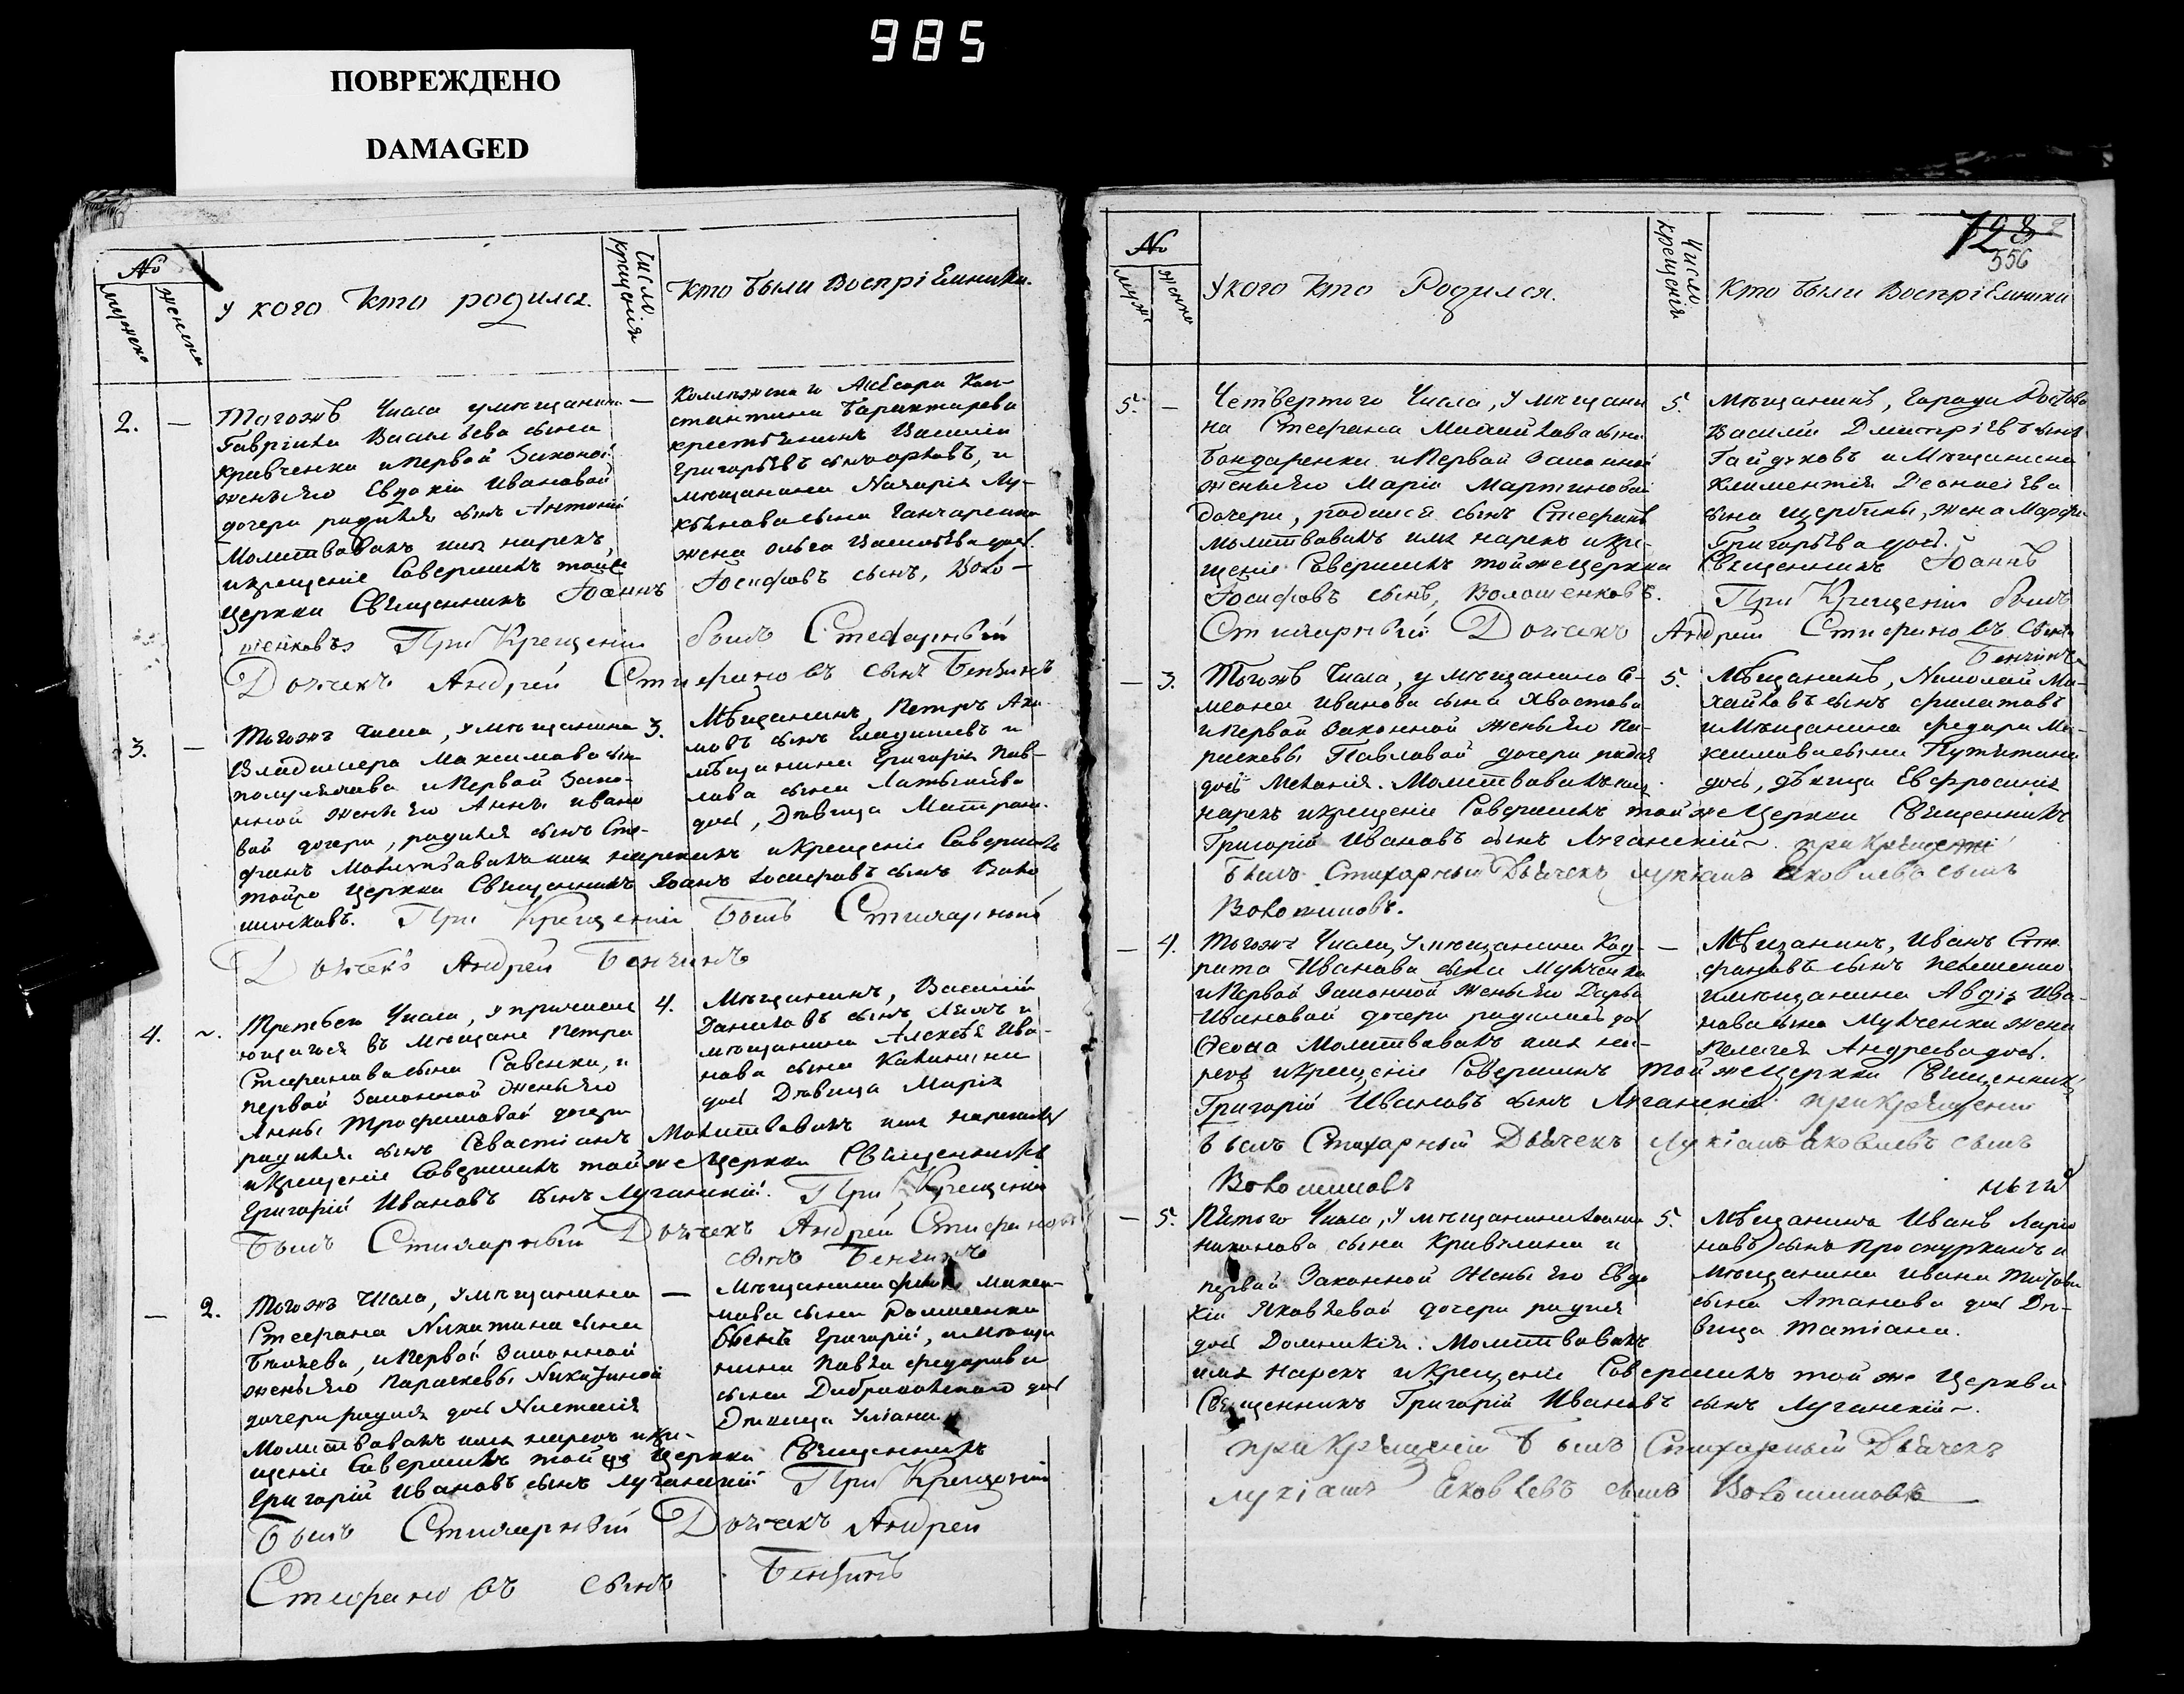 985
ПОВРЕЖДЕНО
DAMAGED
№
мужеска
женска
У кого кто родился.
число крещенія
кто были Воспріемники.
2. —
Тогожъ Числа умещанина —
Гавріила Васильева сына
Кравченка и Первой Законой
жены его Евдокіи Ивановой
дочери родился сынъ Антоній
Молитвовалъ имя нарекъ,
и крещеніе Совершилъ тойже
Церкви Священникъ Іоаннъ Іосифовъ сынъ, Воло-
шенковъ При Крещеніи былъ Стихарный
Дьячекъ Андрей Стефановъ сынъ Бенчинъ
Григорьевъ сынъ Орловъ, и
жена Ольга Васильева дочь.
3. —
Тогожъ числа, у мещанина 3.
Владимера Максимова сын
и Первой Зако-
нной жены его Анны Ивано
вой дочери, родился сынъ Сте-
фанъ Молитвовалъ имя нарекъ и крещеніе Совершилъ
тойже Церкви Священникъ Іоанъ Іосифовъ сынъ Воло
шенковъ. При Крещеніи былъ Стихарной
Дьячекъ Андрей Бенчинъ
Мѣщанинъ, Петръ
мѣщанина Григорія Пав-
лова сына
дочь, Девица Матрона
4. ~.
Третьего Числа, у причисля 4.
ющагося въ Мещане Петра
Стефанова сына Савенки, и
первой Законной жены его
Анны Трофимовой дочери
родился сынъ Севастіанъ Молитвовалъ имя нарекъ
и крещеніе Совершилъ тойже Церкви Священникъ
Григорій Ивановъ сынъ Луганскій. При Крещеніи
былъ Стихарный Дьячекъ Андрей Стефановъ
сынъ Бенчинъ
Мещанинъ, Василій
Даниловъ сынъ
мещанина Алексѣя Ива-
нова сына Калинина
дочь Девица Марія
— 2.
Тогожъ Числа, умещанина —
Стефана Никитина сына
и Первой Законной
жены его Параскевы Никитиной
дочери родися дочь Наталія
Молитвовалъ имя нарекъ и кре-
щеніе Совершилъ той же Церкви Священникъ
Григорій Ивановъ сынъ Луганскій При Крещеніи
былъ Стихарный Дьячекъ Андрей
Стефановъ сынъ Бенчинъ
мова сына Романенка
сынъ Григорій, и мещ
нина Павла Федорова
Девица Уліана.
728
556
№
муж
женска
У кого кто Родился.
Число крещенія
Кто были Воспріемники
5. —
Четвертого Числа, у мещани 5.
на Стефана Михайлова сына
Бондаренки и Первой Законной
жены его Маріи Мартиновой
дочери, родился сынъ Стефанъ
Молитвовалъ имя нарекъ и кре-
щеніе Совершилъ тойже Церкви Священникъ Іоаннъ
Іосифовъ сынъ, Волошенковъ. При Крещеніи былъ
Стихарный Дьячекъ Андрей Стефановъ сынъ
Бенчинъ
Мещанинъ, Города Ростова
Василій Дмитріевъ сынъ
Гайдуковъ и Мещанина
Климентія
сына Щербины, жена Марфа
Григорьева дочь.
— 3.
Тогожъ Числа, у мещанина Си- 5.
меона Иванова сына Хвостова
и Первой Законной жены его Па-
раскевы Павловой дочери родися
дочь Меланія. Молитвовалъ имя
нарекъ и крещеніе Совершилъ той же Церкви Священникъ
Григорій Ивановъ сынъ Луганскій ~. при крещеніи
былъ Стихарный Дьячекъ Лукіанъ Яковлевъ сынъ
Волошиновъ.
Мѣщанинъ, Николай Ми-
хайловъ сынъ Филатовъ
и Мещанина Федора Ма-
ксимова сына
дочь, девица Евфросинія
— 4.
Тогожъ Числа, умещанина Код- —
рата Иванова сына Мулченка
и Первой Законной жены его Дарьи
Ивановой дочери родилась дочь
Молитвовалъ имя на-
рекъ и крещеніе Совершилъ той же Церкви Священникъ
Григорій Ивановъ сынъ Луганскій при крещеніи
былъ Стихарный Дьячекъ Лукіанъ Яковлевъ сынъ
Волошиновъ
Мѣщанинъ, Иванъ Сте
фановъ сынъ
и мещанина Авдія Ива-
нова сына Мулченки жена
Пелагія Андреева дочь.
— 5.
Пятого Числа, у мещанина 5.
сына Кривулина и
первой Законной жены его Евдо
кіи Яковлевой дочери родися
дочь Домникія. Молитвовалъ
имя нарекъ и Крещеніе Совершилъ той же Церкви
Священникъ Григорій Ивановъ сынъ Луганскій ~.
при крещеніи былъ Стихарный Дьячекъ
Лукіанъ Яковлевъ сынъ Волошиновъ
Мѣщанинъ Иванъ Ларіо
новъ сынъ Проскуринъ и
Мещанина Ивана Титова
сына Атанова дочь Де-
вица Татіана.